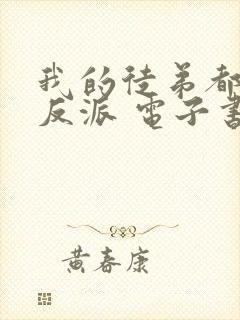 我的徒弟都
反派 電子書
黃春康